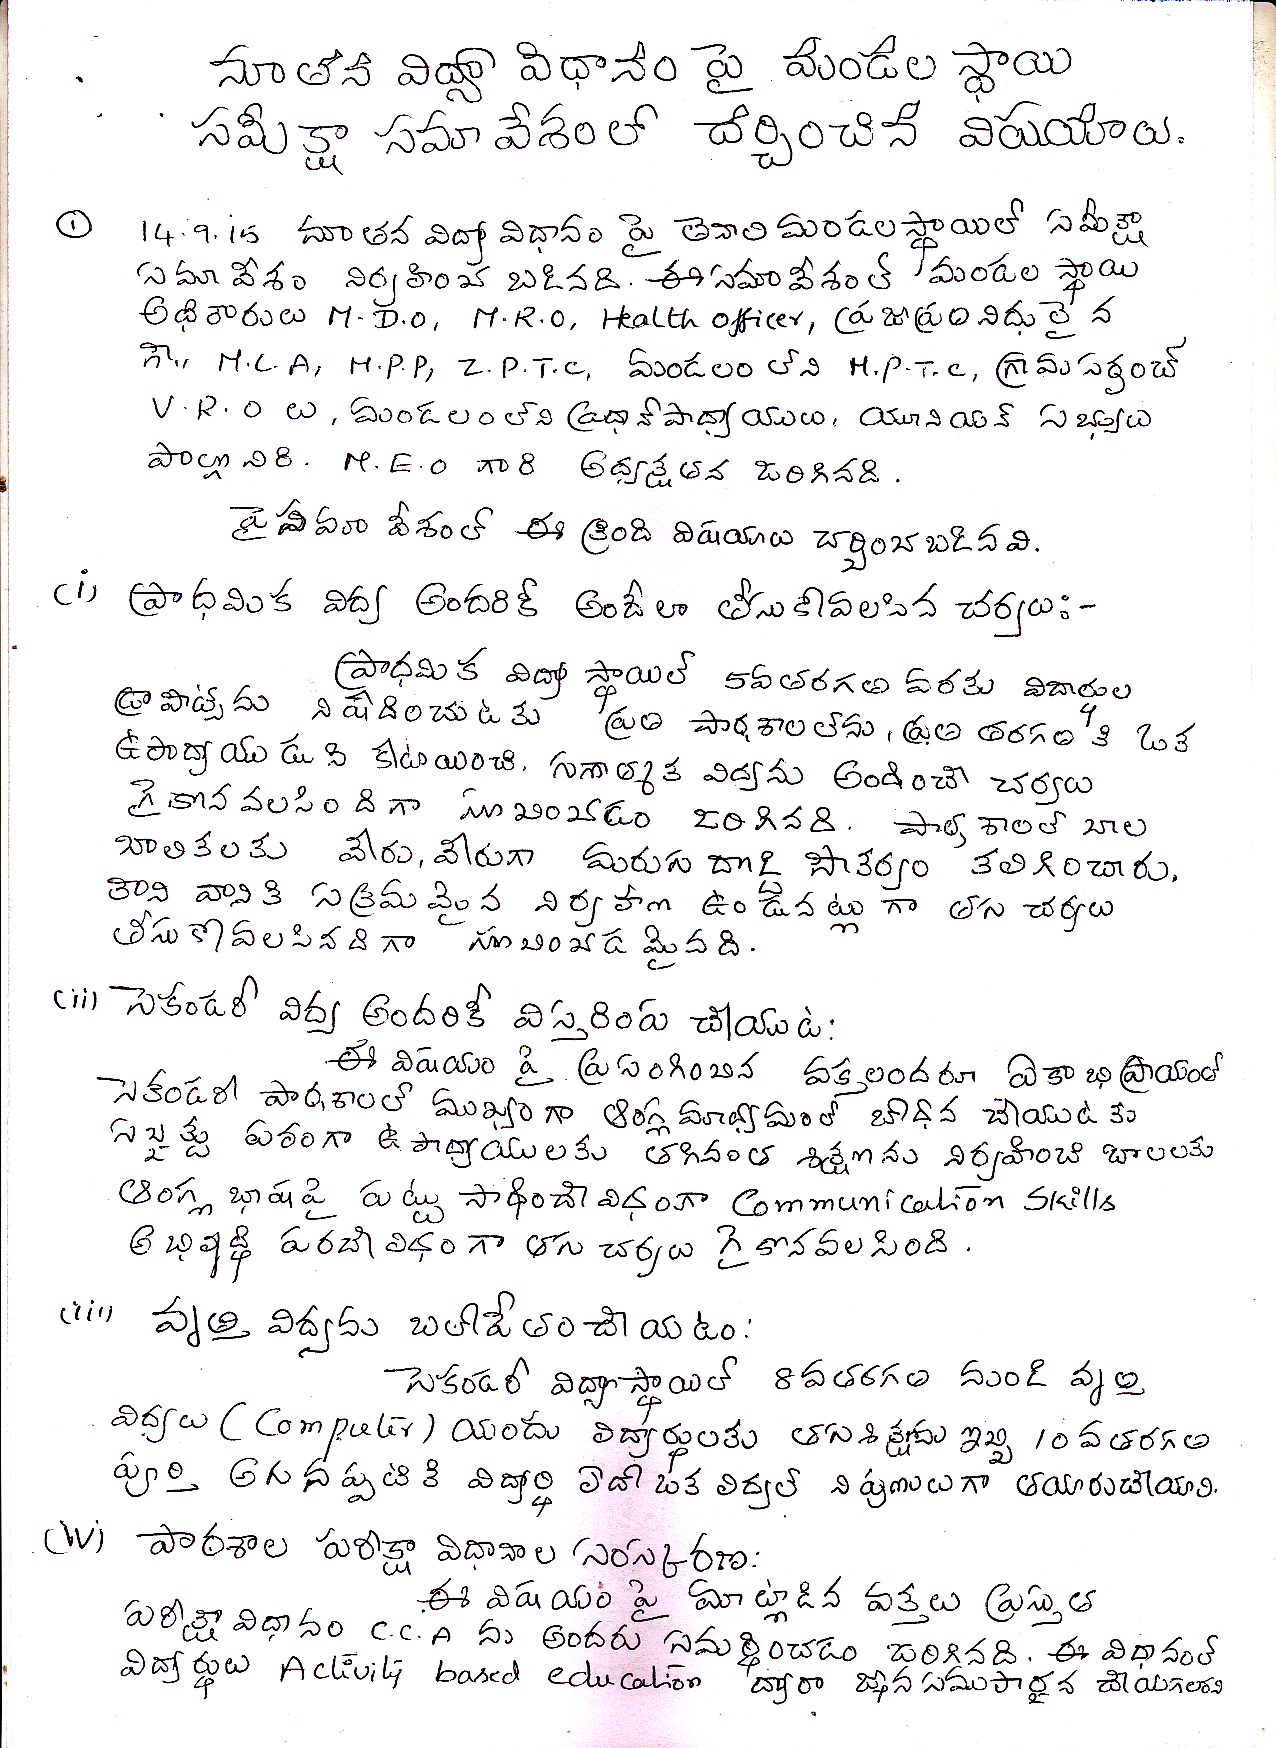 నూతన విద్యా విధానం పై మండల స్థాయి
సమీక్షా సమావేశంలో చర్చించిన విషయాలు.
① 14.9.15 నూతన విద్యా విధానం పై తెనాలి మండలస్థాయిలో సమీక్షా
సమావేశం నిర్వహించ బడినది. ఈ సమావేశంలో మండల స్థాయి
అధికారులు M.D.O, M.R.O, Health officer, ప్రజాప్రతినిధులైన
గౌ,, M.L.A, M.P.P, Z.P.T.C, మండలం లోని M.P.T.C, గ్రామ సర్పంచ్
V.R.O లు, మండలంలోని ప్రధానోపాధ్యాయులు, యూనియన్ సభ్యులు
పాల్గొనిరి. M.E.O గారి అధ్యక్షతన జరిగినది.
పై సమావేశంలో ఈ క్రింది విషయాలు చర్చించబడినవి.
(i) ప్రాధమిక విద్య అందరికీ అందేలా తీసుకోవలసిన చర్యలు:-
ప్రాధమిక విద్యా స్థాయిలో 5వ తరగతి వరకు విద్యార్థుల
డ్రాపౌట్స్ ను నిషేదించుటకు ప్రతి పాఠశాలలోను, ప్రతి తరగతికి ఒక
ఉపాధ్యాయుడుని కేటాయించి, గుణాత్మక విద్యను అందించే చర్యలు
గైకొనవలసిందిగా సూచించడం జరిగినది. పాఠశాలలో బాల
బాలికలకు వేరు, వేరుగా మరుగుదొడ్ల సౌకర్యం కలిగించారు,
కాని వానికి సక్రమమైన నిర్వహణ ఉండేనట్లుగా తగు చర్యలు
తీసుకోవలసినదిగా సూచించడమైనది.
(ii) సెకండరీ విద్య అందరికీ విస్తరింపు చేయుట:
ఈ విషయం పై ప్రసంగించిన వక్తలందరూ ఏకాభిప్రాయంతో
సెకండరీ పాఠశాలలో ముఖ్యంగా ఆంగ్ల మాధ్యమంలో బోధన చేయుటకు
సబ్జెక్టు పరంగా ఉపాధ్యాయులకు తగినంత శిక్షణను నిర్వహించి బాలలకు
ఆంగ్ల భాషపై పట్టు సాధించే విధంగా Communication Skills
అభివృద్ధి పరచే విధంగా తగు చర్యలు గైకొనవలసింది.
(iii) వృత్తి విద్యను బలోపేతం చేయడం:
సెకండరీ విద్యాస్థాయిలో 8వ తరగతి నుండి వృత్తి
విద్యలు (Computer) యందు విద్యార్థులకు తగు శిక్షణ ఇచ్చి 10వ తరగతి
పూర్తి అగునప్పటికి విద్యార్థి ఏదో ఒక విద్యలో నిపుణులుగా తయారుచేయాలి.
(iv) పాఠశాల పరీక్షా విధానాల సంస్కరణ:
ఈ విషయం పై మాట్లాడిన వక్తలు ప్రస్తుత
పరీక్షా విధానం C.C.A ను అందరు సమర్థించడం జరిగినది. ఈ విధానంలో
విద్యార్థులు Activity based education ద్వారా జ్ఞాన సముపార్జన చేయగలరని